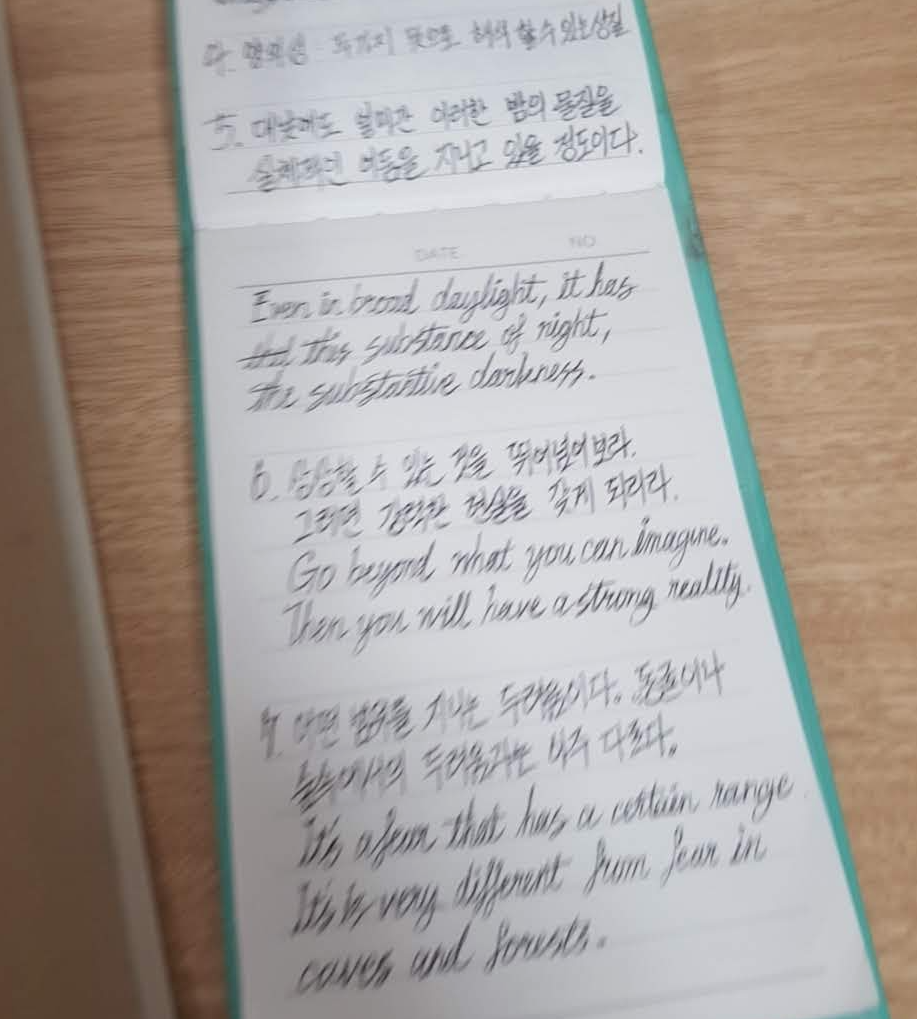 4. 양의성 두가지 뜻으로 해석 할 수 있는 성질
5. 대낮에도 얼마간 이러한 밤의 물질을
실체적인 어둠을 지니고 있을 정도이다.
DATE NO
Even in broad daylight, it has
this substance of night,
the substantive darkness.
6. 상상할 수 있는 것을 뛰어넘어보라.
그러면 강력한 현실을 갖게 되리라.
Go beyond what you can imagine.
Then you will have a strong reality.
7. 어떤 범위를 지니는 두려움이다. 동굴이나
숲속에서의 두려움과는 아주 다르다.
It's a fear that has a certain range
It's very different from fear in
caves and forests.